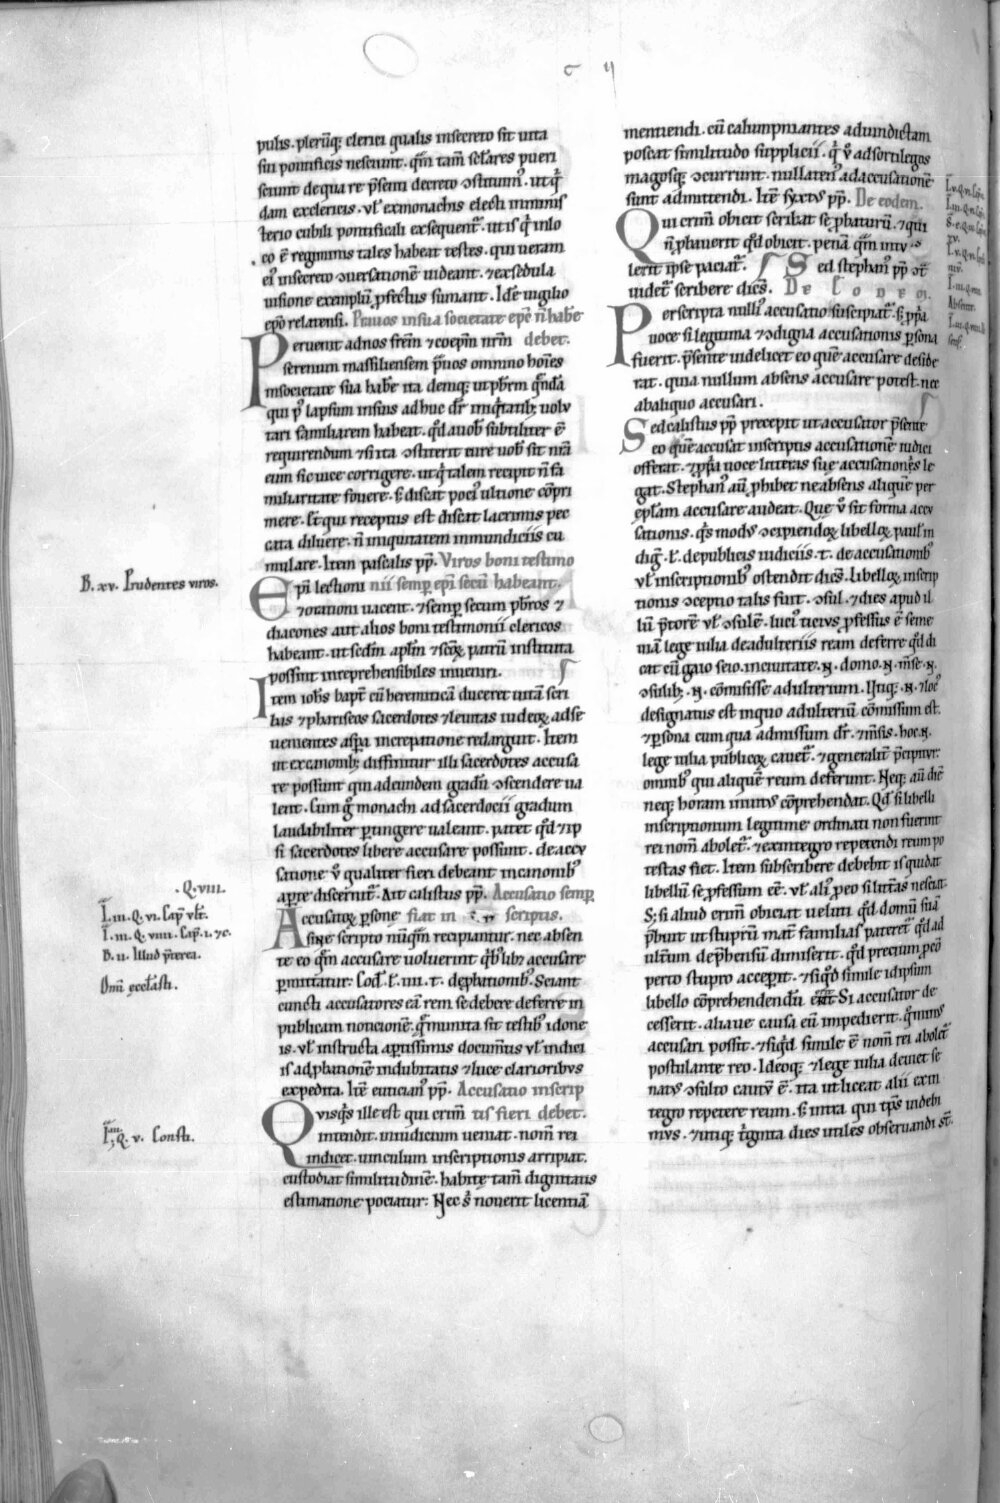 c ii
pulis. pleruq; clerici qualis insecreto sit uita
sui pontificis nesciunt. qm tam sclares pueri
sciunt de qua re psenti decreto ɔstituim⁹. ut q̇
dam exclericis. ul' exmonachis electi minis
terio cubili pontificali exsequent᷑. ut is q̇ in lo
co ē regiminis tales habeat testes. qui ueram
ei⁹ insecreto ɔuersationē uideant. & exsedula
uisione exemplū pfectus sumant. Idē uigilio
epo relatensi. Priuos in sua societate epc n̄ habē
Peruenit ad nos frēm & coepm nrm debet.
serenum massiliensem p̄uos omnino hoīes
in societate sua habē ita deniq; ut pbrm q̄ndā
qui p⁹ lapsum in suis adhuc dr̄ iniq̄tatib; uolu
tari familiarem habeat. qd a uob subtiliter ē
requirendum & si ita ɔstiterit eure uob sit nrā
eum sic uice corrigere. ut q̇ talem recipit n̄ fa
miliaritate fouere. s; discat poci⁹ ultione cōpri
mere. & qui receptus est discat lacrimis pec
cata diluere. n̄ iniquitatem inmundiciis cu
mulare. Item pascalis pp. Viros boni testimo
Epi lectioni nii semp epi secū habeant.
& orationi uacent. & semp secum pbros &
diacones aut alios boni testimonii clericos
habeant. ut sedm aplm & scōꝝ patrū instituta
possint inreprehensibiles inueniri.
Item iohs bapt cū heremiticā duceret uitā scri
bas & phariseos sacerdotes & leuitas iudeoꝝ ad se
uenientes aspa increpatione redarguit. Item
ut ex canonib; diffinitur illi sacerdotes accusa
re possunt qui ad eundem gradū ɔscendere ua
lent. Cum g̊ monachi ad sacerdocii gradum
laudabiliter ptingere ualeant. patet qd & ip
si sacerdotes libere accusare possunt. de accu
satione v̊ qualiter fieri debeant in canonib⁹
apte discernit᷑. Ait calistus pp. Accusatio semp
Accusatoꝝ psone fiat in scriptis.
sine scripto nūq̄m recipiantur. nec absen
te eo qm accusare uoluerint qb; lib; accusare
pmittatur. Cod. l. iiii. t. de pbationib⁹. Sciant
cuncti accusatores eā rem se debere deferre in
publicam notionē. q̄ munita sit testib⁹ idone
is. ul' instructa aptissimis documtis ul' indici
is ad pbationē indubitatis & luce clarioribus
expedita. Itē eutician⁹ pp. Accusatio inscrip
Quisq̇s ille est qui crim tis fieri debet.
intendit. in iudicium ueniat. nom rei
indicet. uinculum inscriptionis arripiat.
custodiat similitudinē. habita tam dignitatis
estimatione pociatur. Nec s; nouerit licentiā
mentiendi. cū calumpniantes ad uindictam
poscat similitudo supplicii. q̇ v̊ ad sortilegos
magosq; ɔcurrunt. nullaten⁹ ad accusationē
sunt admittendi. Itē syxtus pp. De eodem.
Qui crim obicit scribat se pbaturū. & qui
n̄ pbauerit qd obicit. penā qm intu
lerit ipse paciat᷑. Sed stephan⁹ pp ɔt
uidet᷑ scribere dicēs. De Eodem.
Per scripta nulli⁹ accusatio suscipiat᷑. s; ppa
uoce si legitima & ɔdigna accusationis psona
fuerit. psente uidelicet eo quē accusare deside
rat. quia nullum absens accusare potest. nec
ab aliquo accusari.
Sed calistus pp precepit ut accusator psente
eo quē accusat inscriptis accusationē iudici
offerat. & ppa uoce litteras suę accusationis le
gat. Stephan⁹ aū phibet ne absens aliquē per
eplam accusare audeat. Que v̊ sit forma accu
sationis. q̇s modus ɔcipiendoꝝ libelloꝝ paul' in
dig. l. de publicis iudiciis. t. de accusationib⁹
ul' inscriptionib⁹ ostendit dicēs. libelloꝝ inscrip
tionis ɔceptio talis sint. ɔsul. & dies apud il
lū pretorē ul' ɔsulē. luci⁹ ticius pfessus ē seme
uiā lege iulia de adulteriis ream deferre qd di
cat eū gaio seio. in ciuitate. N. domo. N. mse. N.
ɔsulib; .N. cōmisisse adulterium. Utiq; .N. & loc⁹
designatus est in quo adulteriū cōmissum est.
& psona cum qua admissum dr̄. & msis. hoc. n.
lege iulia publicoꝝ cauet᷑. & generalit pcipitur
omnib⁹ qui aliquē reum deferunt. Neq; aū diē
neq; horam inuitus cōprehendat. Qd si libelli
inscriptionum legitime ordinati non fuerint
rei nom abolet᷑. & ex integro repetendi reum po
testas fiet. Item subscribere debebit is qui dat
libellū se pfessum eē. ul' ali⁹ p eo si litas nesciat.
S; si aliud crim obiciat ueluti qd domū suā
pbuit ut stuprū mat familias pateret᷑ qd ad
ultum dephensū dimiserit. qd precium p eo
perto stupro acceperit. & si qd simile id ipsum
libello cōprehendendū erit. Si accusator de
cesserit. aliaue causa eū impedierit. q̄minus
accusari possit. & si qd simile ē nom rei abolet᷑
postulante reo. Ideoq; & lege iulia deuiet se
natus ɔsulto cautū ē. ita ut liceat alii ex in
tegro repetere reum. s; intra qui tps uidebi
mus. & utiq; triginta dies utiles obseruandi st.
B. xv. Prudentes viros.
.Q. viii.
I. iii. Q. vi. Cap. vlt.
I. iii. Q. viii. Cap. i. &c.
B. ii. Illud preterea.
Dm̄ ecclasti.
Q. v. Consti.